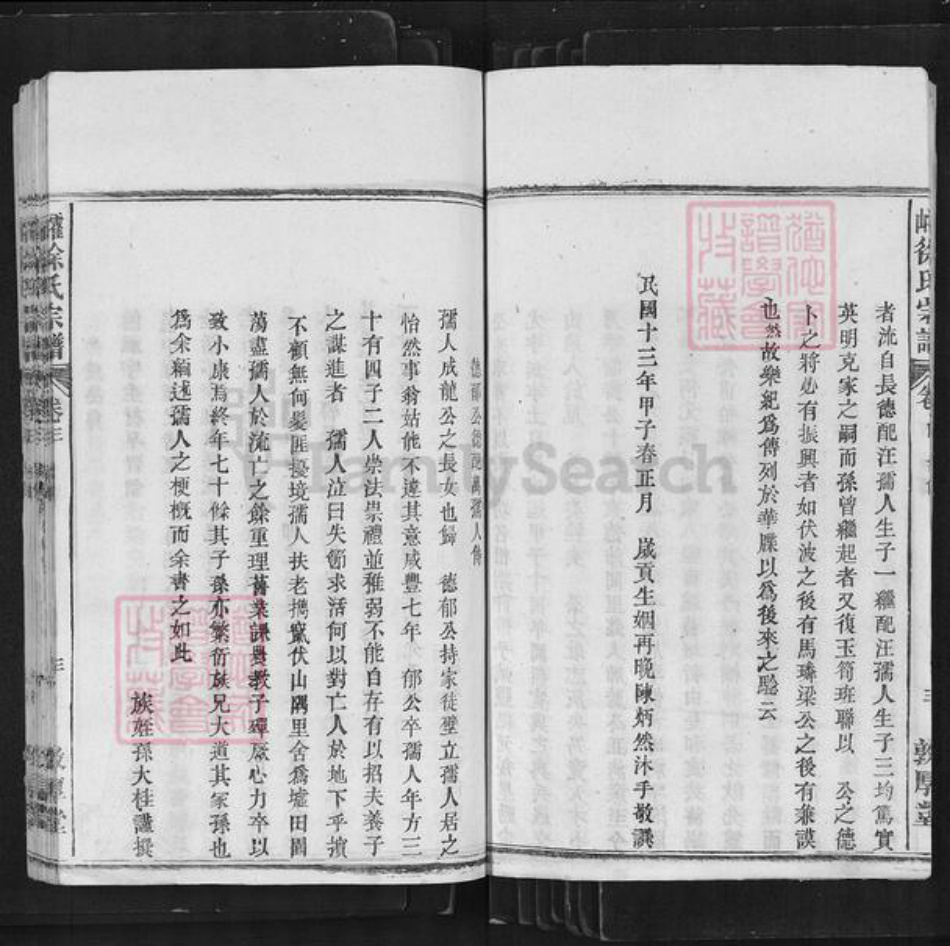 徐氏宗譜
者流自長德配汪孺人生子一繼配汪孺人生子三均篤實
英明克家之嗣而孫曾繼起者又復玉筍班聯以 公之德
卜之將必有振興者如伏波之後有馬璘梁公之後有兼謨
也然故樂紀爲傳列於華牒以爲後來之驗云
民國十三年甲子春正月 歲貢生姻再晚陳炳然沐手敬譔
三
敦厚堂
德郁公德配萬孺人傳
孺人成龍公之長女也歸 德郁公持家徒壁立孺人居之
怡然事翁姑能不違其意咸豐七年 郁公卒孺人年方三
十有四子二人崇法崇禮並稚弱不能自存有以招夫養子
之謀進者 孺人泣曰失節求活何以對亡人於地下乎擯
不顧無何髮匪擾境孺人扶老擕竄伏山隅里舍爲墟田園
蕩盡孺人於流亡之餘重理舊業課農教子殫厥心力卒以
致小康焉終年七十餘其子孫亦繁衍族兄大道其冢孫也
爲余縷述孺人之梗概而余書之如此
族姪孫大桂謹撰
徐氏宗譜
卷三
三
敦厚堂
FamilySearch